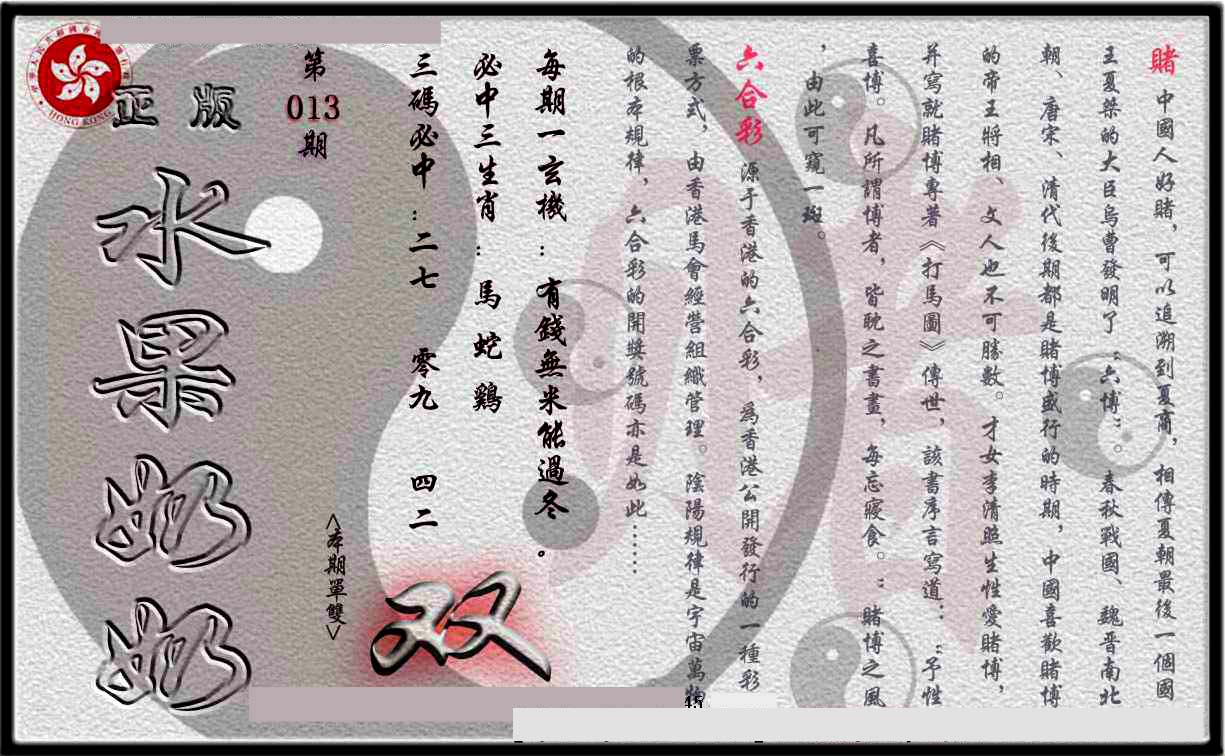 賭 中國人好賭，可以追溯到夏商，相傳夏朝最後一個國
王夏桀的大臣烏曹發明了“六博”。春秋戰國、魏晋南北
朝、唐宋、清代後期都是賭博盛行的時期，中國喜歡賭博
的帝王將相、文人也不可勝數。才女李清照生性愛賭博，
并寫就賭博專著《打馬圖》傳世，該書序言寫道：“予性
喜博。凡所謂博者，皆耽之書畫，每忘寢食。”賭博之風
，由此可窺一斑。
六合彩 源于香港的六合彩，為香港公開發行的一種彩
票方式，由香港馬會經營組織管理。陰陽規律是宇宙萬物
的根本規律，六合彩的開獎號碼亦是如此……
每期一玄機：有錢無米能過冬。
必中三生肖：馬 蛇 鷄
三碼必中：二七 零九 四二
<本期單雙>
双
第
013
期
正版
水果奶奶
HONG KONG